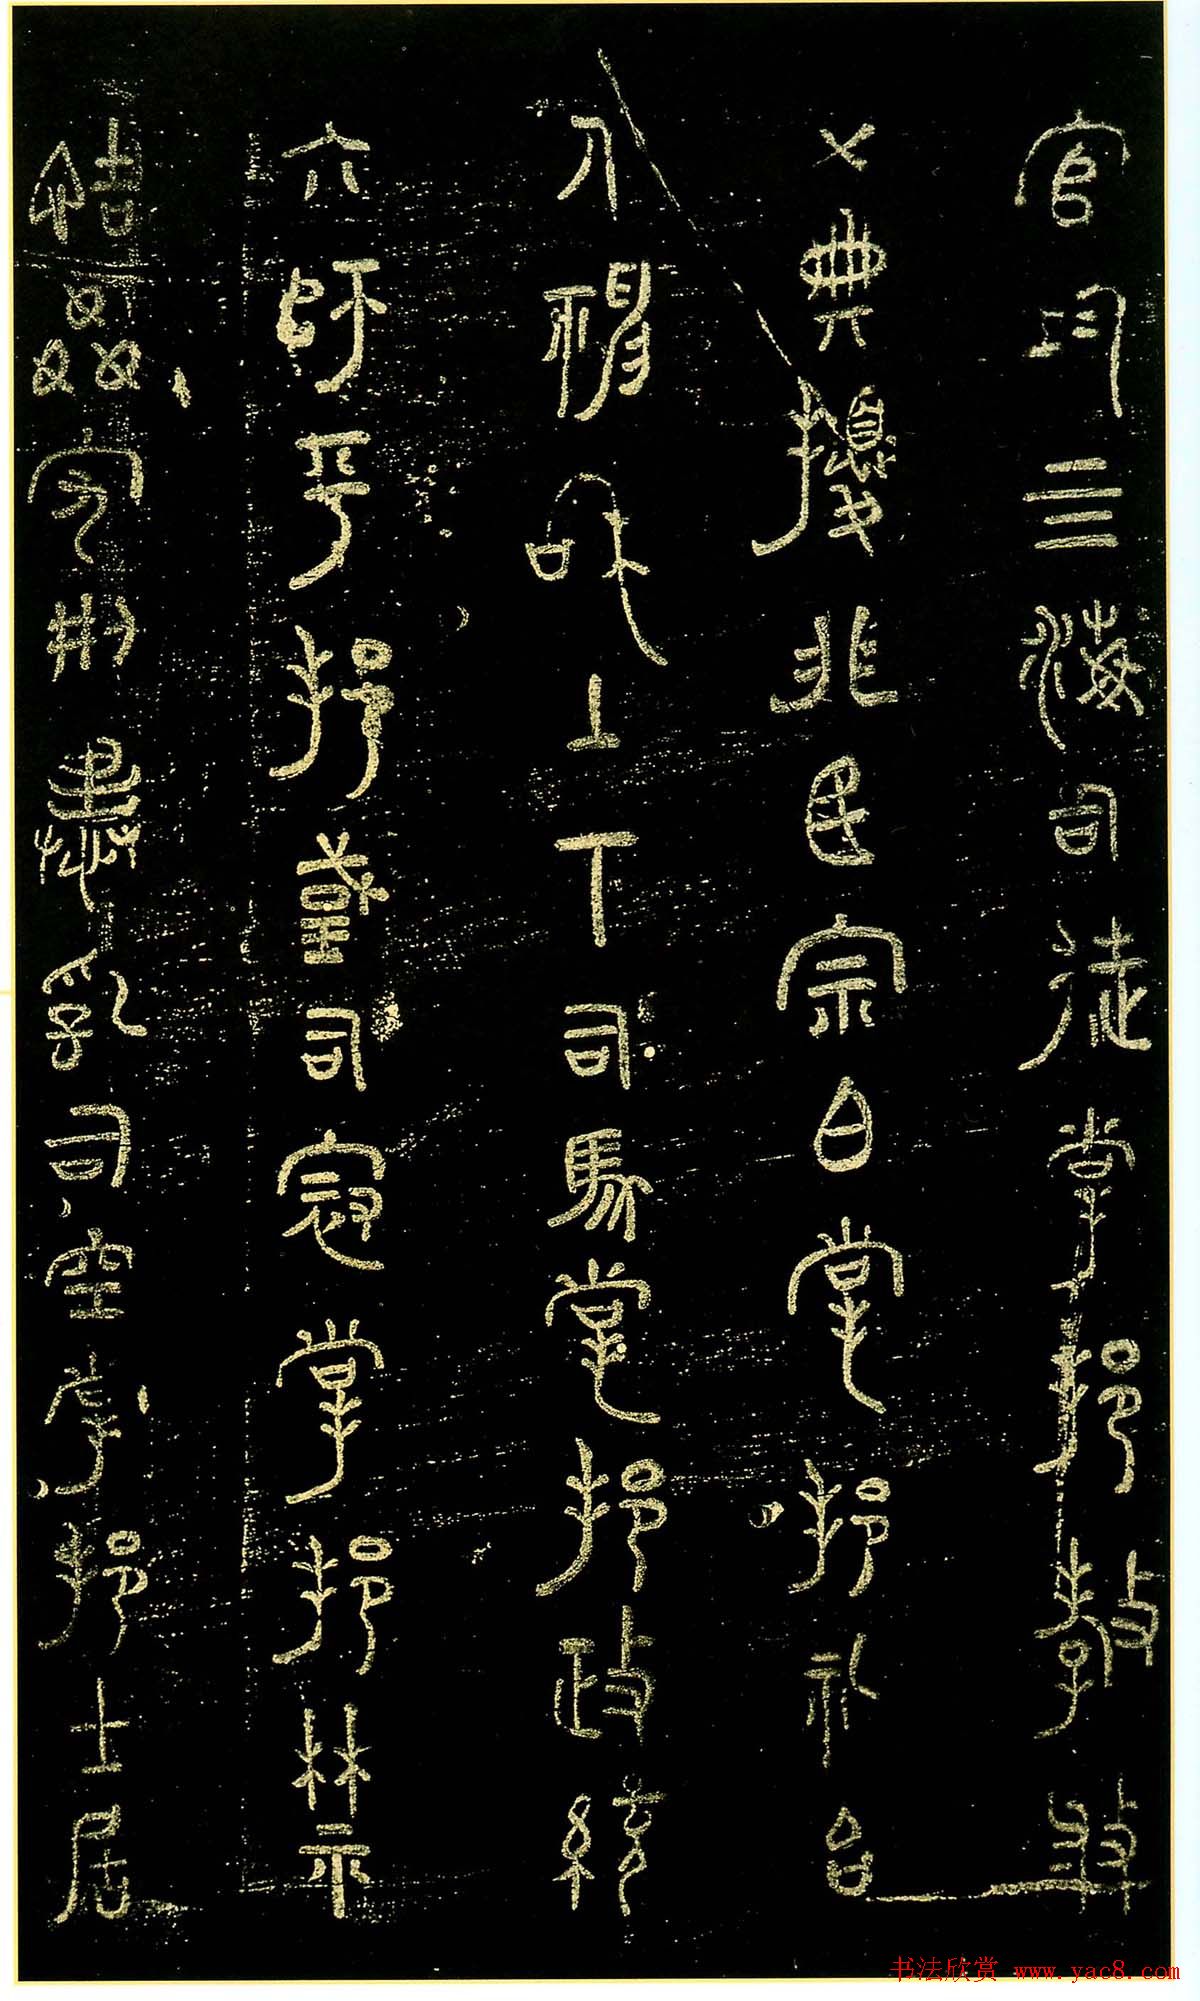 官均四海司徒掌邦教敷
五典擾兆民宗伯掌邦礼治
人神和上下司馬掌邦政統
六師平邦國司寇掌邦禁
詰姦慝刑暴亂司空掌邦土居
书法欣赏 www.yac8.com